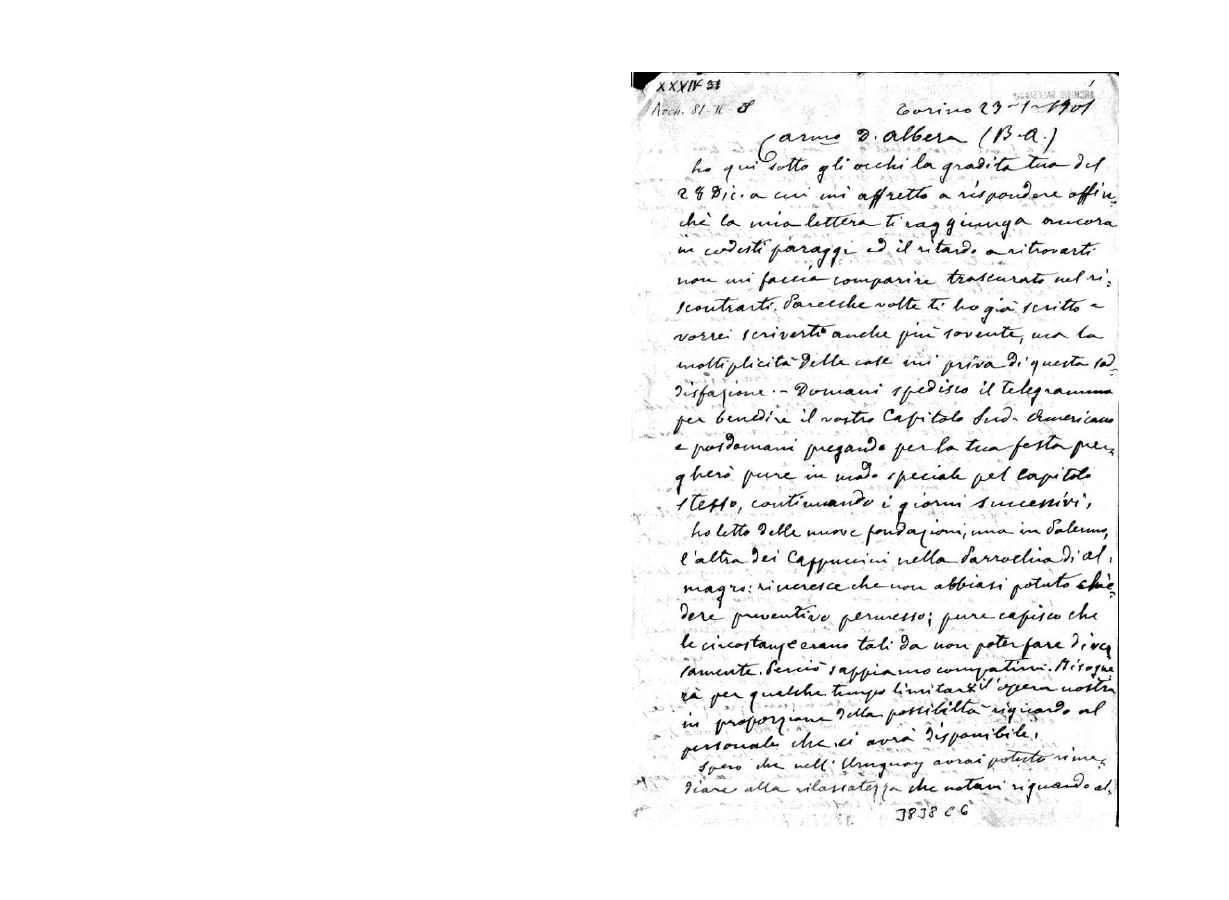 XXXIV 31
Arch. 81-II-
Torino 23-1-1901
Carmo D. Albera (B. A.)
ho qui sotto gli occhi la gradita tua del
28 Dic. a cui mi affretto a rispondere affin-
chè la mia lettera ti raggiunga ancora
in codesti paraggi ed il ritardo a ritrovarti
non mi faccia comparire trascurato nel ri-
scontrarti. Parecche volte ti ho già scritto e
vorrei scriverti anche più sovente, ma la
molteplicità delle cose mi priva di questa sod-
disfazione. - Domani spedisco il telegramma
per benedire il vostro Capitolo Sud-Americano
e posdomani pregando per la tua festa pre-
gherò pure in modo speciale pel Capitolo
stesso, continuando i giorni successivi.
ho letto delle nuove fondazioni, una in Palermo,
l'altra dei Cappuccini nella Parrochia di Al-
magro: rincresce che non abbiasi potuto chie-
dere preventivo permesso; pure capisco che
le circostanze erano tali da non poter fare diver
samente. Perciò sappiamo compatirci. Bisogne
rà per qualche tempo limitare l'opera nostra
in proporzione della possibiltà riguardo al
personale che si avrà disponibile.
Spero che nell'Uruguay avrai potuto rime-
diare alla rilassatezza che notavi riguardo al-
3838 C 6